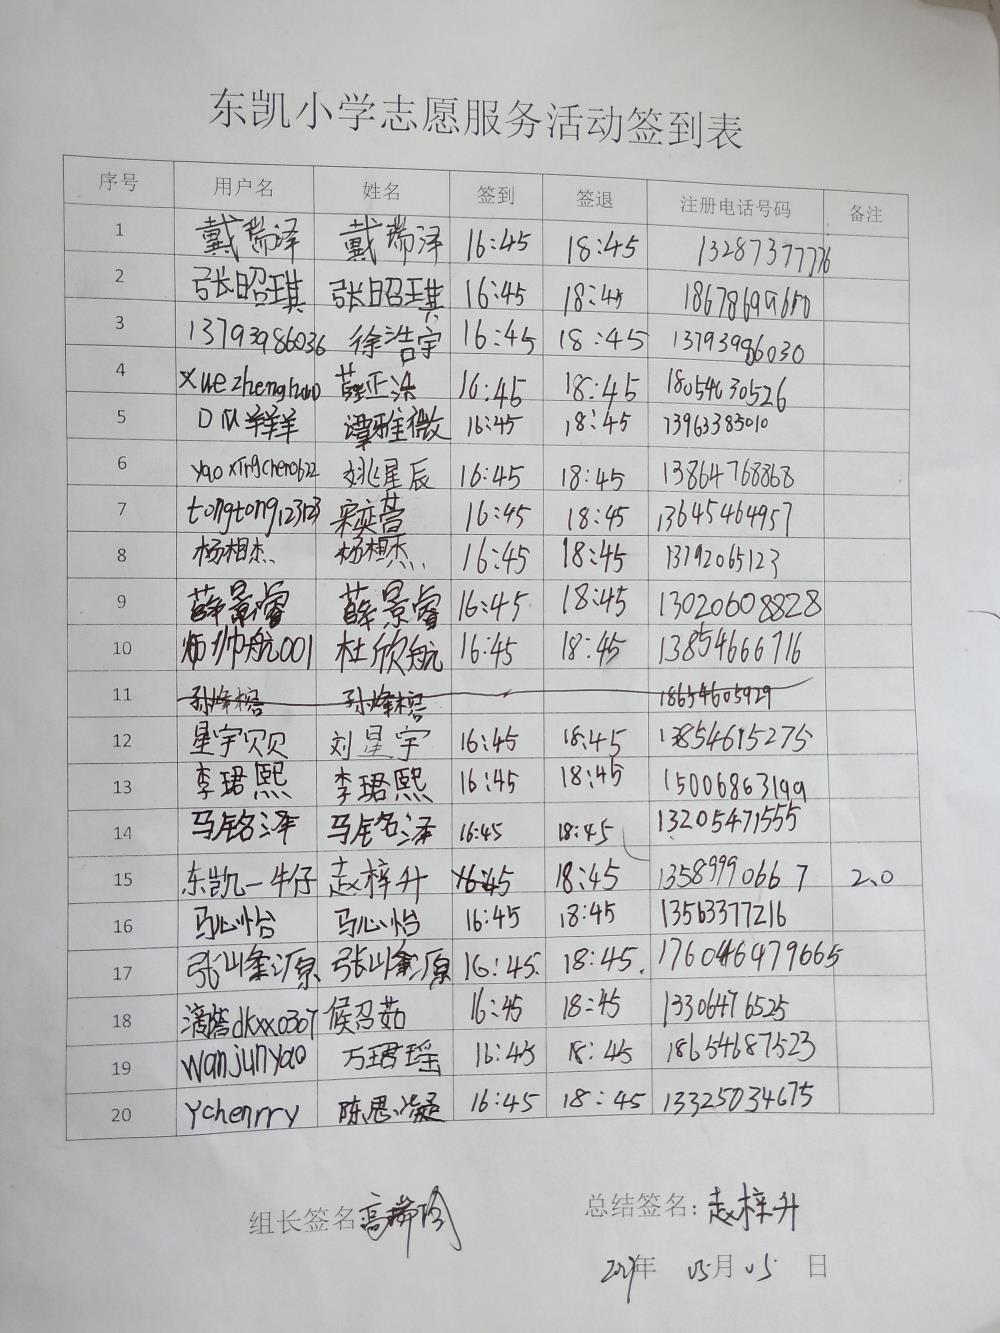 东凯小学志愿服务活动签到表
序号 用户名 姓名 签到 签退 注册电话号码 备注
1 戴瑞泽 戴瑞泽 16:45 18:45 13287377776
2 张昭琪 张昭琪 16:45 18:45
3 13793986036 徐浩宇 16:45 18:45 13793986030
4 薛正浩 16:45 18:45 18054630526
5 DM羊羊羊 谭雅微 16:45 18:45 13963385010
6 yaoxingchen0622 姚星辰 16:45 18:45 13864768868
7 tongtong123123 宋奕萱 16:45 18:45 13645464957
8 杨相杰 杨相杰 16:45 18:45 13792065123
9 薛景睿 薛景睿 16:45 18:45 13020608828
10 帅航001 杜欣航 16:45 18:45 13854666716
11 孙烽榕 孙烽榕 18654605929
12 星宇贝贝 刘星宇 16:45 18:45 13854615275
13 李珺熙 李珺熙 16:45 18:45 15006863199
14 马铭泽 马铭泽 16:45 18:45 13205471555
15 东凯一牛仔 赵梓升 16:45 18:45 13589990667 2.0
16 马心怡 马心怡 16:45 18:45 13563377216
17 张峰源 张峰源 16:45. 18:45. 176046479665
18 滴嗒dkxx0307 侯召茹 16:45 18:45 13306476525
19 wanjunyao 万珺瑶 16:45 18:45 18654687523
20 Ychenrry 陈思凝 16:45 18:45 13325034675
组长签名 高 总结签名: 赵梓升
年 05月05 日